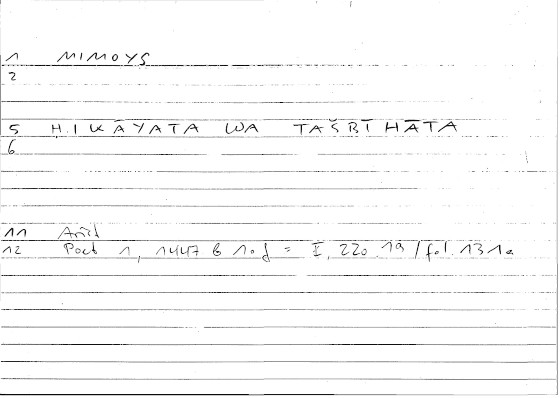 1 MIMOYS
2
5 ḤIKĀYATA WA TAŠBĪHĀTA
6
11 Arist
12 Poet 1, 1447 b 10 f = I, 220, 19 / fol. 131a